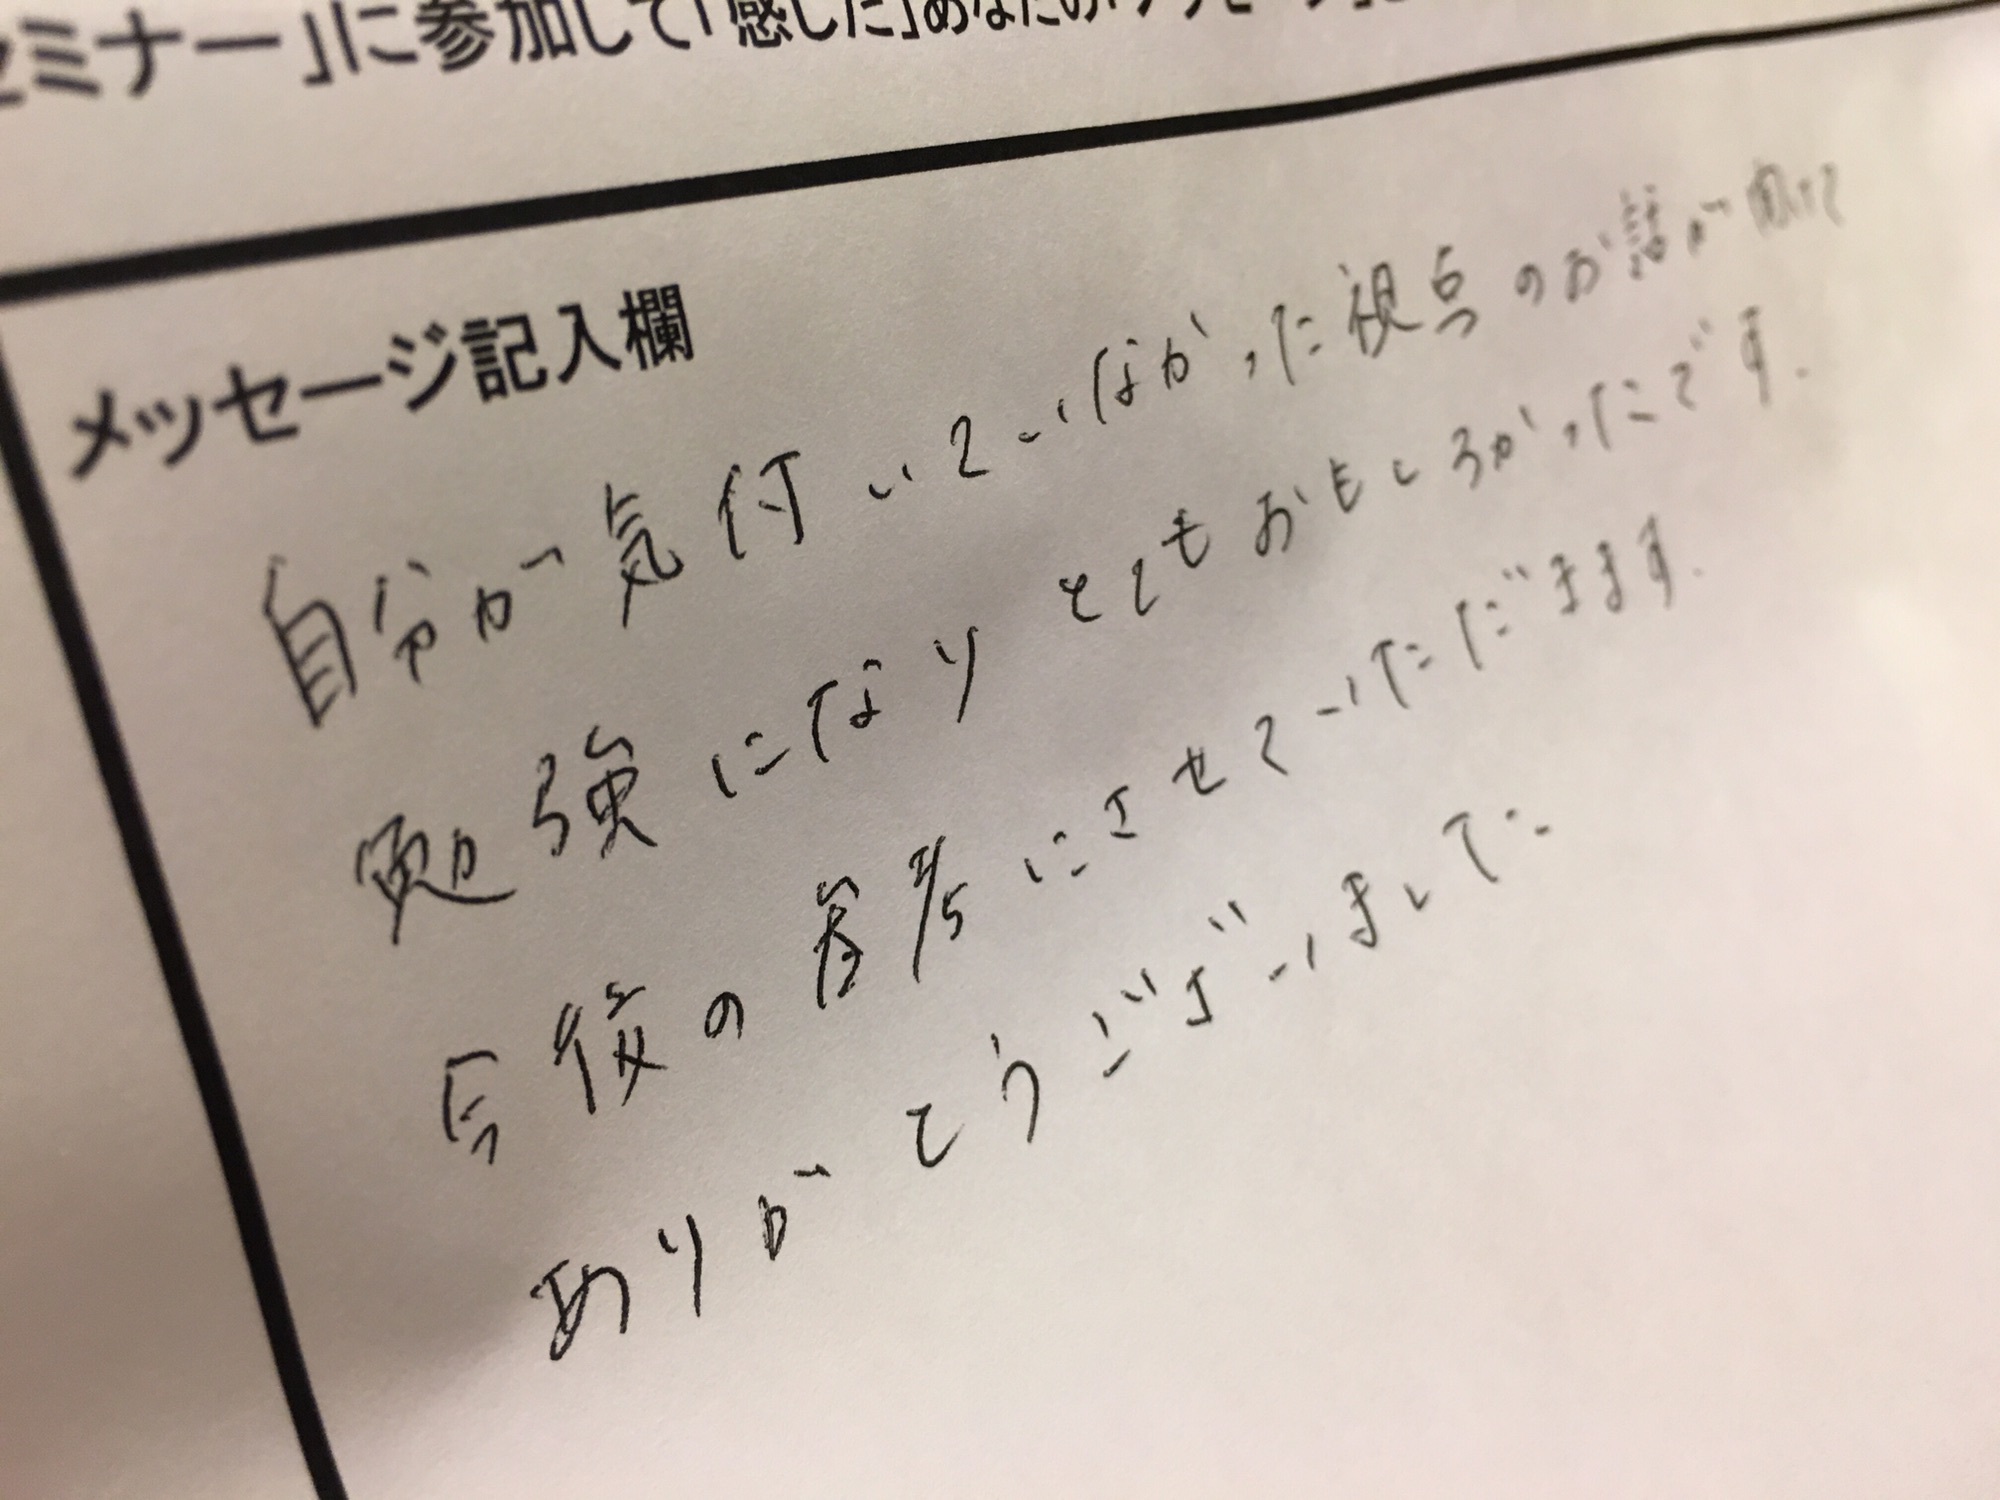 セミナー」に参加して「感じた」あなたの「メッセージ」
メッセージ記入欄
自分が気付いていなかった視点のお話が聞けて
勉強になりとてもおもしろかったです.
今後の参考にさせていただきます.
ありがとうございました